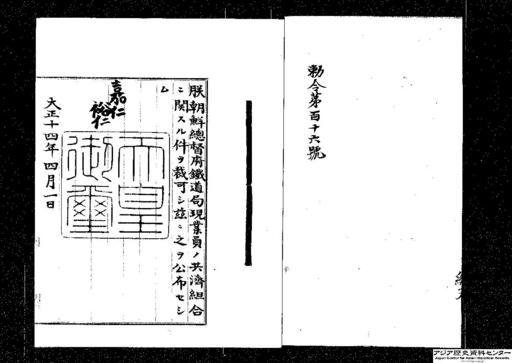 勅令第百十六號
朕朝鮮總督府鐵道局現業員ノ共濟組合
ニ關スル件ヲ裁可シ茲ニ之ヲ公布セシ
ム
嘉仁
裕仁
天皇御璽
大正十四年四月一日
アジア歴史資料センター
Japan Center for Asian Historical Records